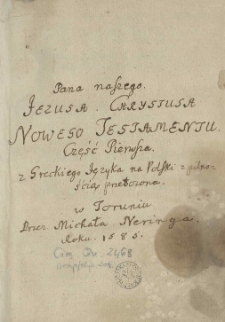 Pana naszego.
JEZUSA. CHRYSTUSA
NOWEGO TESTAMENTU.
Część Pierwsza.
z Greckiego Języka na Polski z pilno-
ścią przełożona.
w Toruniu
Przez Michała Neringa.
Roku. 1585.
Cim. Qu. 2468